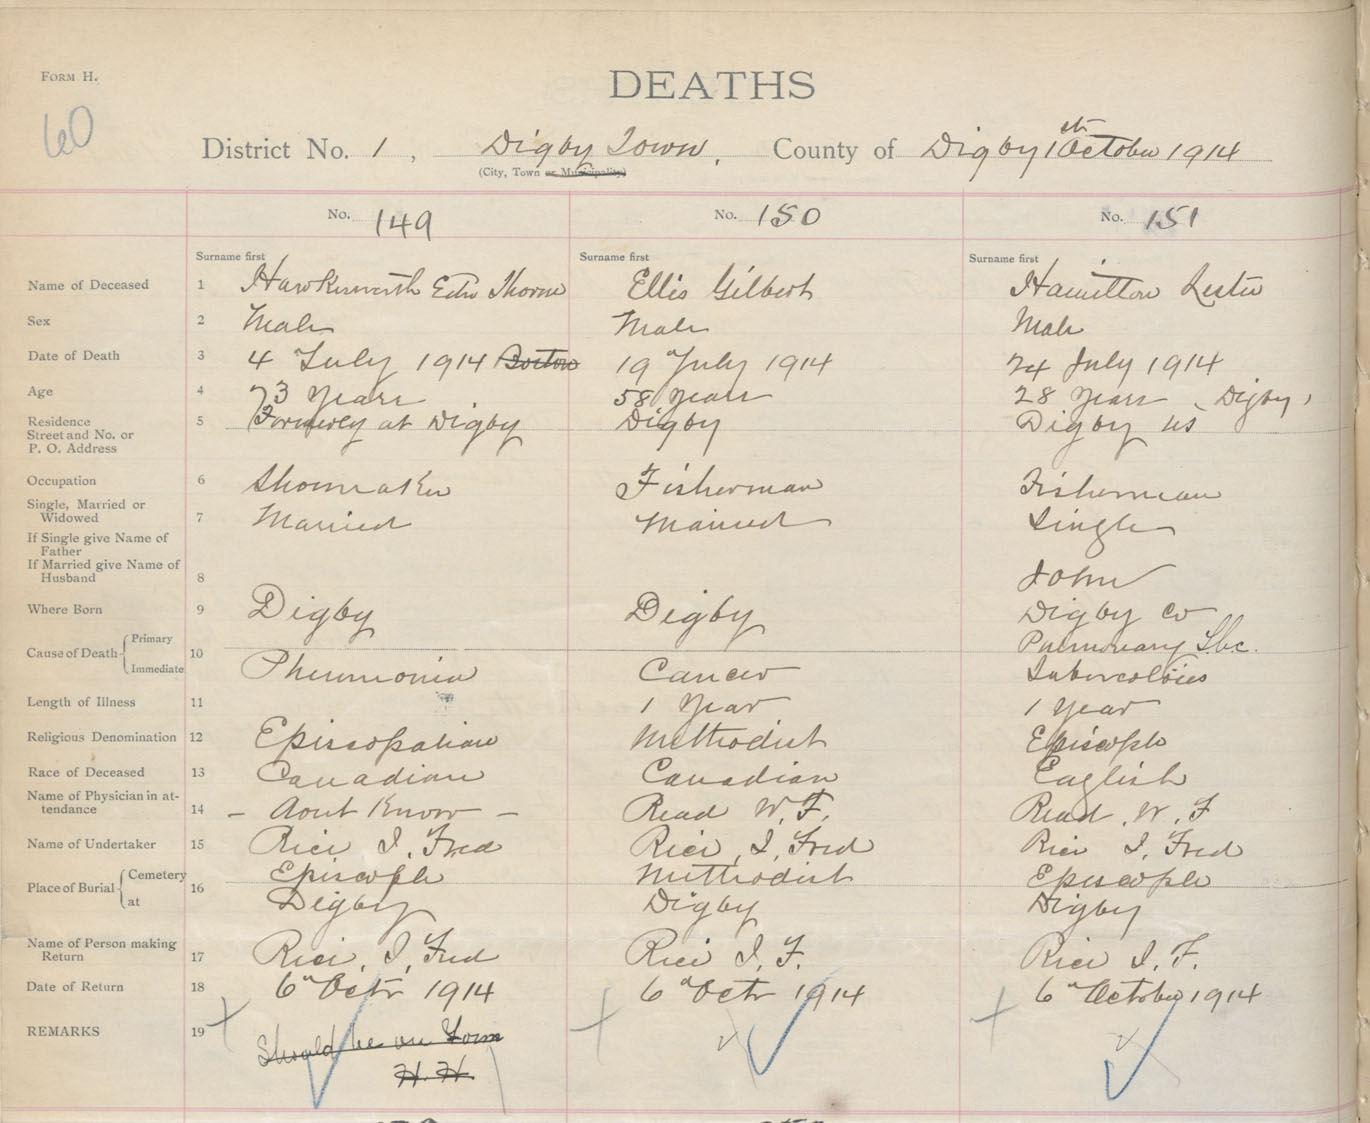 FORM H.
60
DEATHS
District No. 1, Digby Town, County of Digby 1st October 1914
(City, Town or Municipality)
No. 149 No. 150 No. 151
Surname first Surname first Surname first
Name of Deceased 1 Hawkesworth Edw Thorne Ellis Gilbert Hamilton Lester
Sex 2 Male Male Male
Date of Death 3 4 July 1914 Boston 19 July 1914 24 July 1914
Age 4 73 Years 58 Years 28 Years Digby,
Residence 5 Formerly at Digby Digby Digby
Street and No. or
P. O. Address
Occupation 6 Shoemaker Fisherman Fisherman
Single, Married or
Widowed 7 Married Married Single
If Single give Name of
Father
If Married give Name of
Husband 8 John
Where Born 9 Digby Digby Digby Co
Cause of Death Primary 10 Pulmonary
Immediate Pheumonia Cancer
Length of Illness 11 1 Year 1 year
Religious Denomination 12 Episcopalian Methodist Episcople
Race of Deceased 13 Canadian Canadian English
Name of Physician in at-
tendance 14 – dont Know – Read W. F. Read. W. F
Name of Undertaker 15 Rice I. Fred Rice, I, Fred Rice I. Fred
Place of Burial Cemetery 16 Episcople Methodist Episcople
at Digby Digby Digby
Name of Person making
Return 17 Rice, I, Fred Rice I. F. Rice I. F.
Date of Return 18 6th Octr 1914 6th Octr 1914 6th October 1914
REMARKS 19 Should be on Form
H. H.